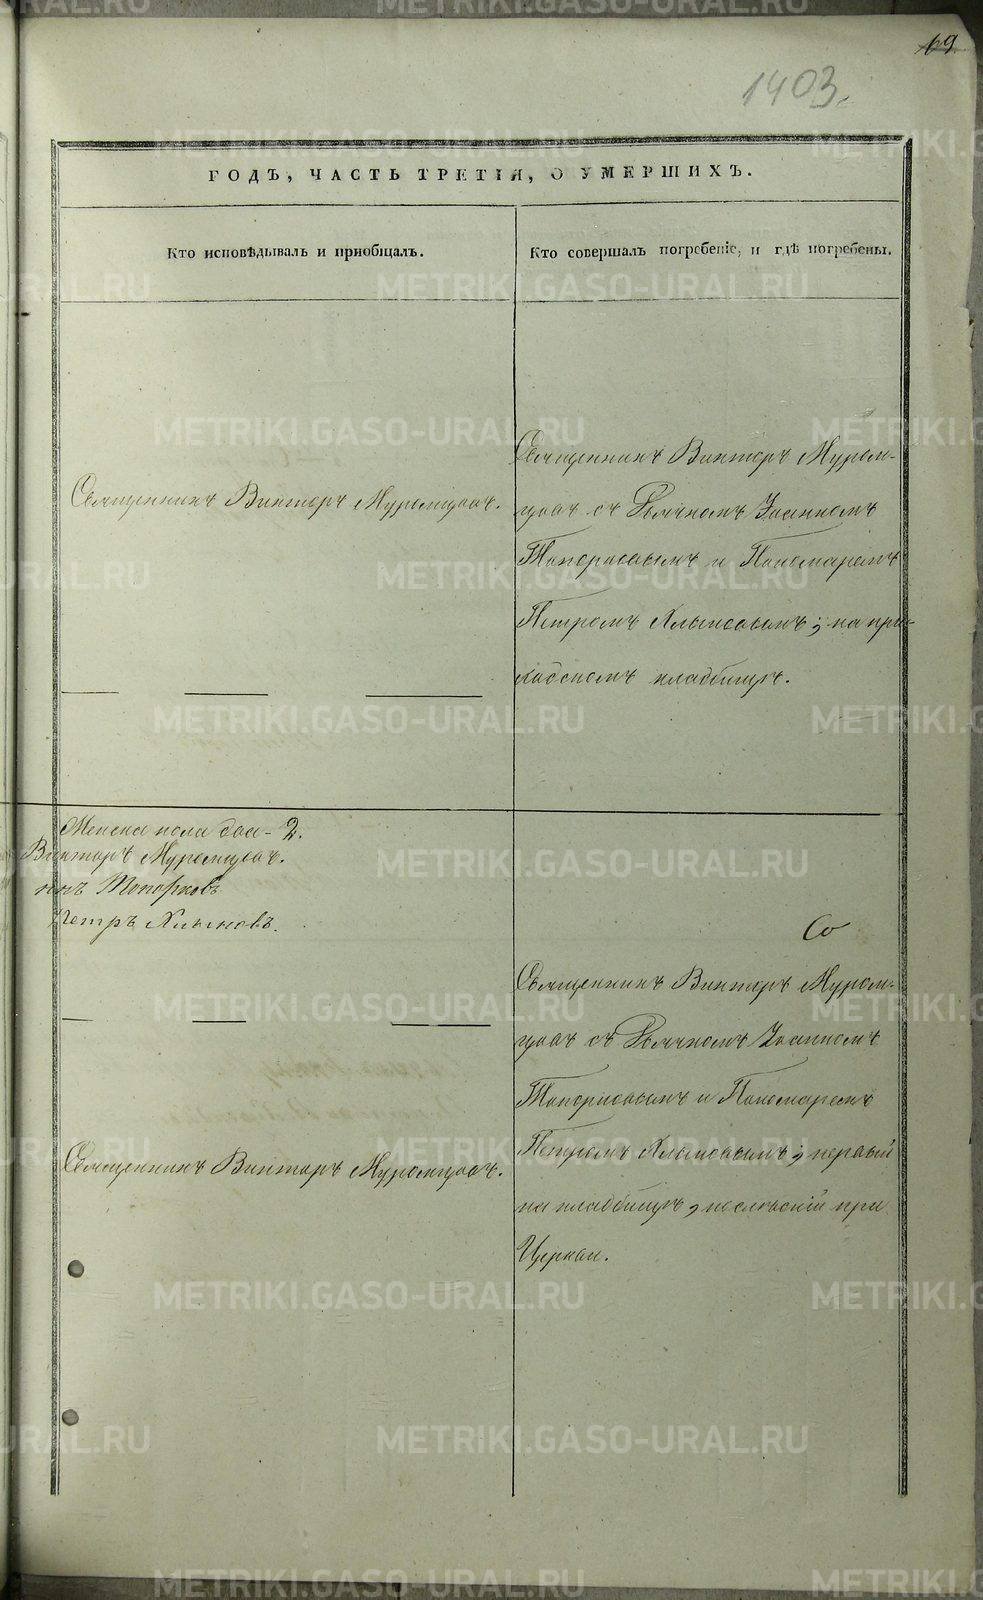 69
1403.
ГОДЪ, ЧАСТЬ ТРЕТІЯ, О УМЕРШИХЪ.
Кто исповѣдывалъ и пріобщалъ.
Кто совершалъ погребеніе, и гдѣ погребены.
Священникъ Викторъ Муромцовъ.
Священникъ Викторъ Муром-
цовъ съ Дьячкомъ Іоанномъ
Топорковымъ и Пономаремъ
Петромъ Хлыновымъ; на при-
ходскомъ кладбищѣ.
Женска пола два - 2.
Викторъ Муромцовъ.
нъ Топорковъ
Петръ Хлыновъ.
Священникъ Викторъ Муромцовъ.
Священникъ Викторъ Муром-
цовъ съ Дьячкомъ Іоанномъ
Топорковымъ и Пономаремъ
Петромъ Хлыновымъ; первый
на кладбищѣ, при
Церкви.
METRIKI.GASO-URAL.RU